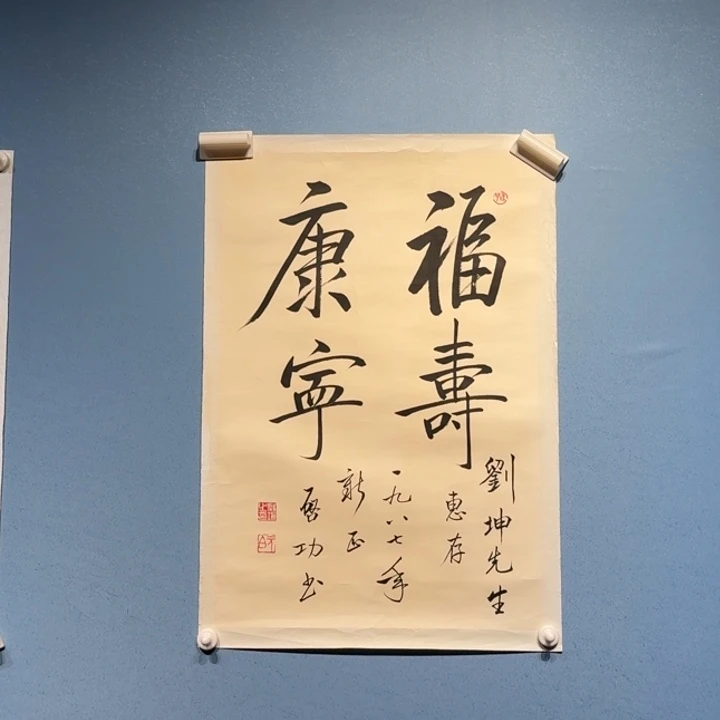 福壽
康寧
劉坤先生
惠存
一九八七年
新正
啓功书